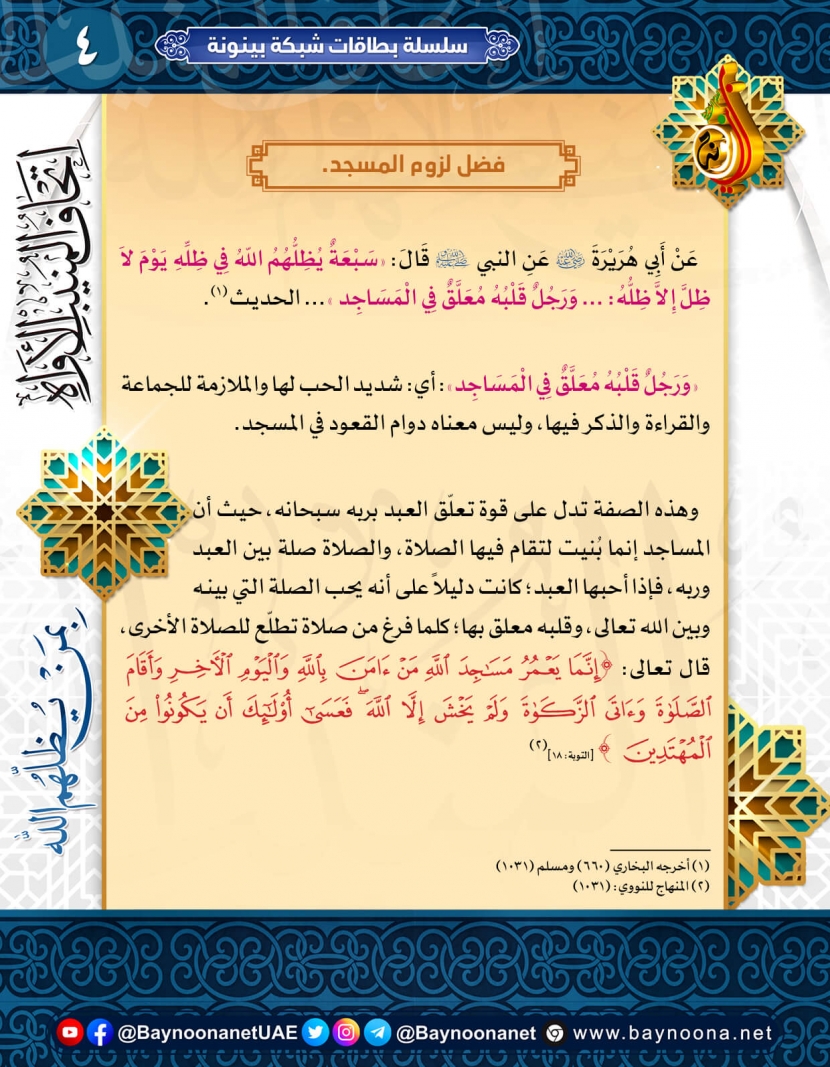 ٤
سلسلة بطاقات شبكة بينونة
إتحاف المنيب الأواه
بمَن يُظلّهم الله
فضل لزوم المسجد.
عَنْ أَبِي هُرَيْرَةَ رضي الله عنه عَنِ النبي ﷺ قَالَ: «سَبْعَةٌ يُظِلُّهُمُ اللهُ فِي ظِلِّهِ يَوْمَ لاَ
ظِلَّ إِلاَّ ظِلُّهُ: ... وَرَجُلٌ قَلْبُهُ مُعَلَّقٌ فِي الْمَسَاجِدِ »... الحديث(١).
«وَرَجُلٌ قَلْبُهُ مُعَلَّقٌ فِي الْمَسَاجِدِ»: أي: شديد الحب لها والملازمة للجماعة
والقراءة والذكر فيها، وليس معناه دوام القعود في المسجد.
وهذه الصفة تدل على قوة تعلّق العبد بربه سبحانه، حيث أن
المساجد إنما بُنيت لتقام فيها الصلاة، والصلاة صلة بين العبد
وربه، فإذا أحبها العبد؛ كانت دليلاً على أنه يحب الصلة التي بينه
وبين الله تعالى، وقلبه معلق بها؛ كلما فرغ من صلاة تطلّع للصلاة الأخرى،
قال تعالى: ﴿إِنَّمَا يَعْمُرُ مَسَٰجِدَ ٱللَّهِ مَنْ ءَامَنَ بِٱللَّهِ وَٱلْيَوْمِ ٱلْأَخِرِ وَأَقَامَ
ٱلصَّلَوٰةَ وَءَاتَى ٱلزَّكَوٰةَ وَلَمْ يَخْشَ إِلَّا ٱللَّهَ ۖ فَعَسَىٰٓ أُو۟لَٰٓئِكَ أَن يَكُونُوا۟ مِنَ
ٱلْمُهْتَدِينَ ﴾ [التوبة: ١٨](٢)
(١) أخرجه البخاري (٦٦٠) ومسلم (١٠٣١)
(٢) المنهاج للنووي: (١٠٣١)
@BaynoonanetUAE @Baynoonanet www.baynoona.net